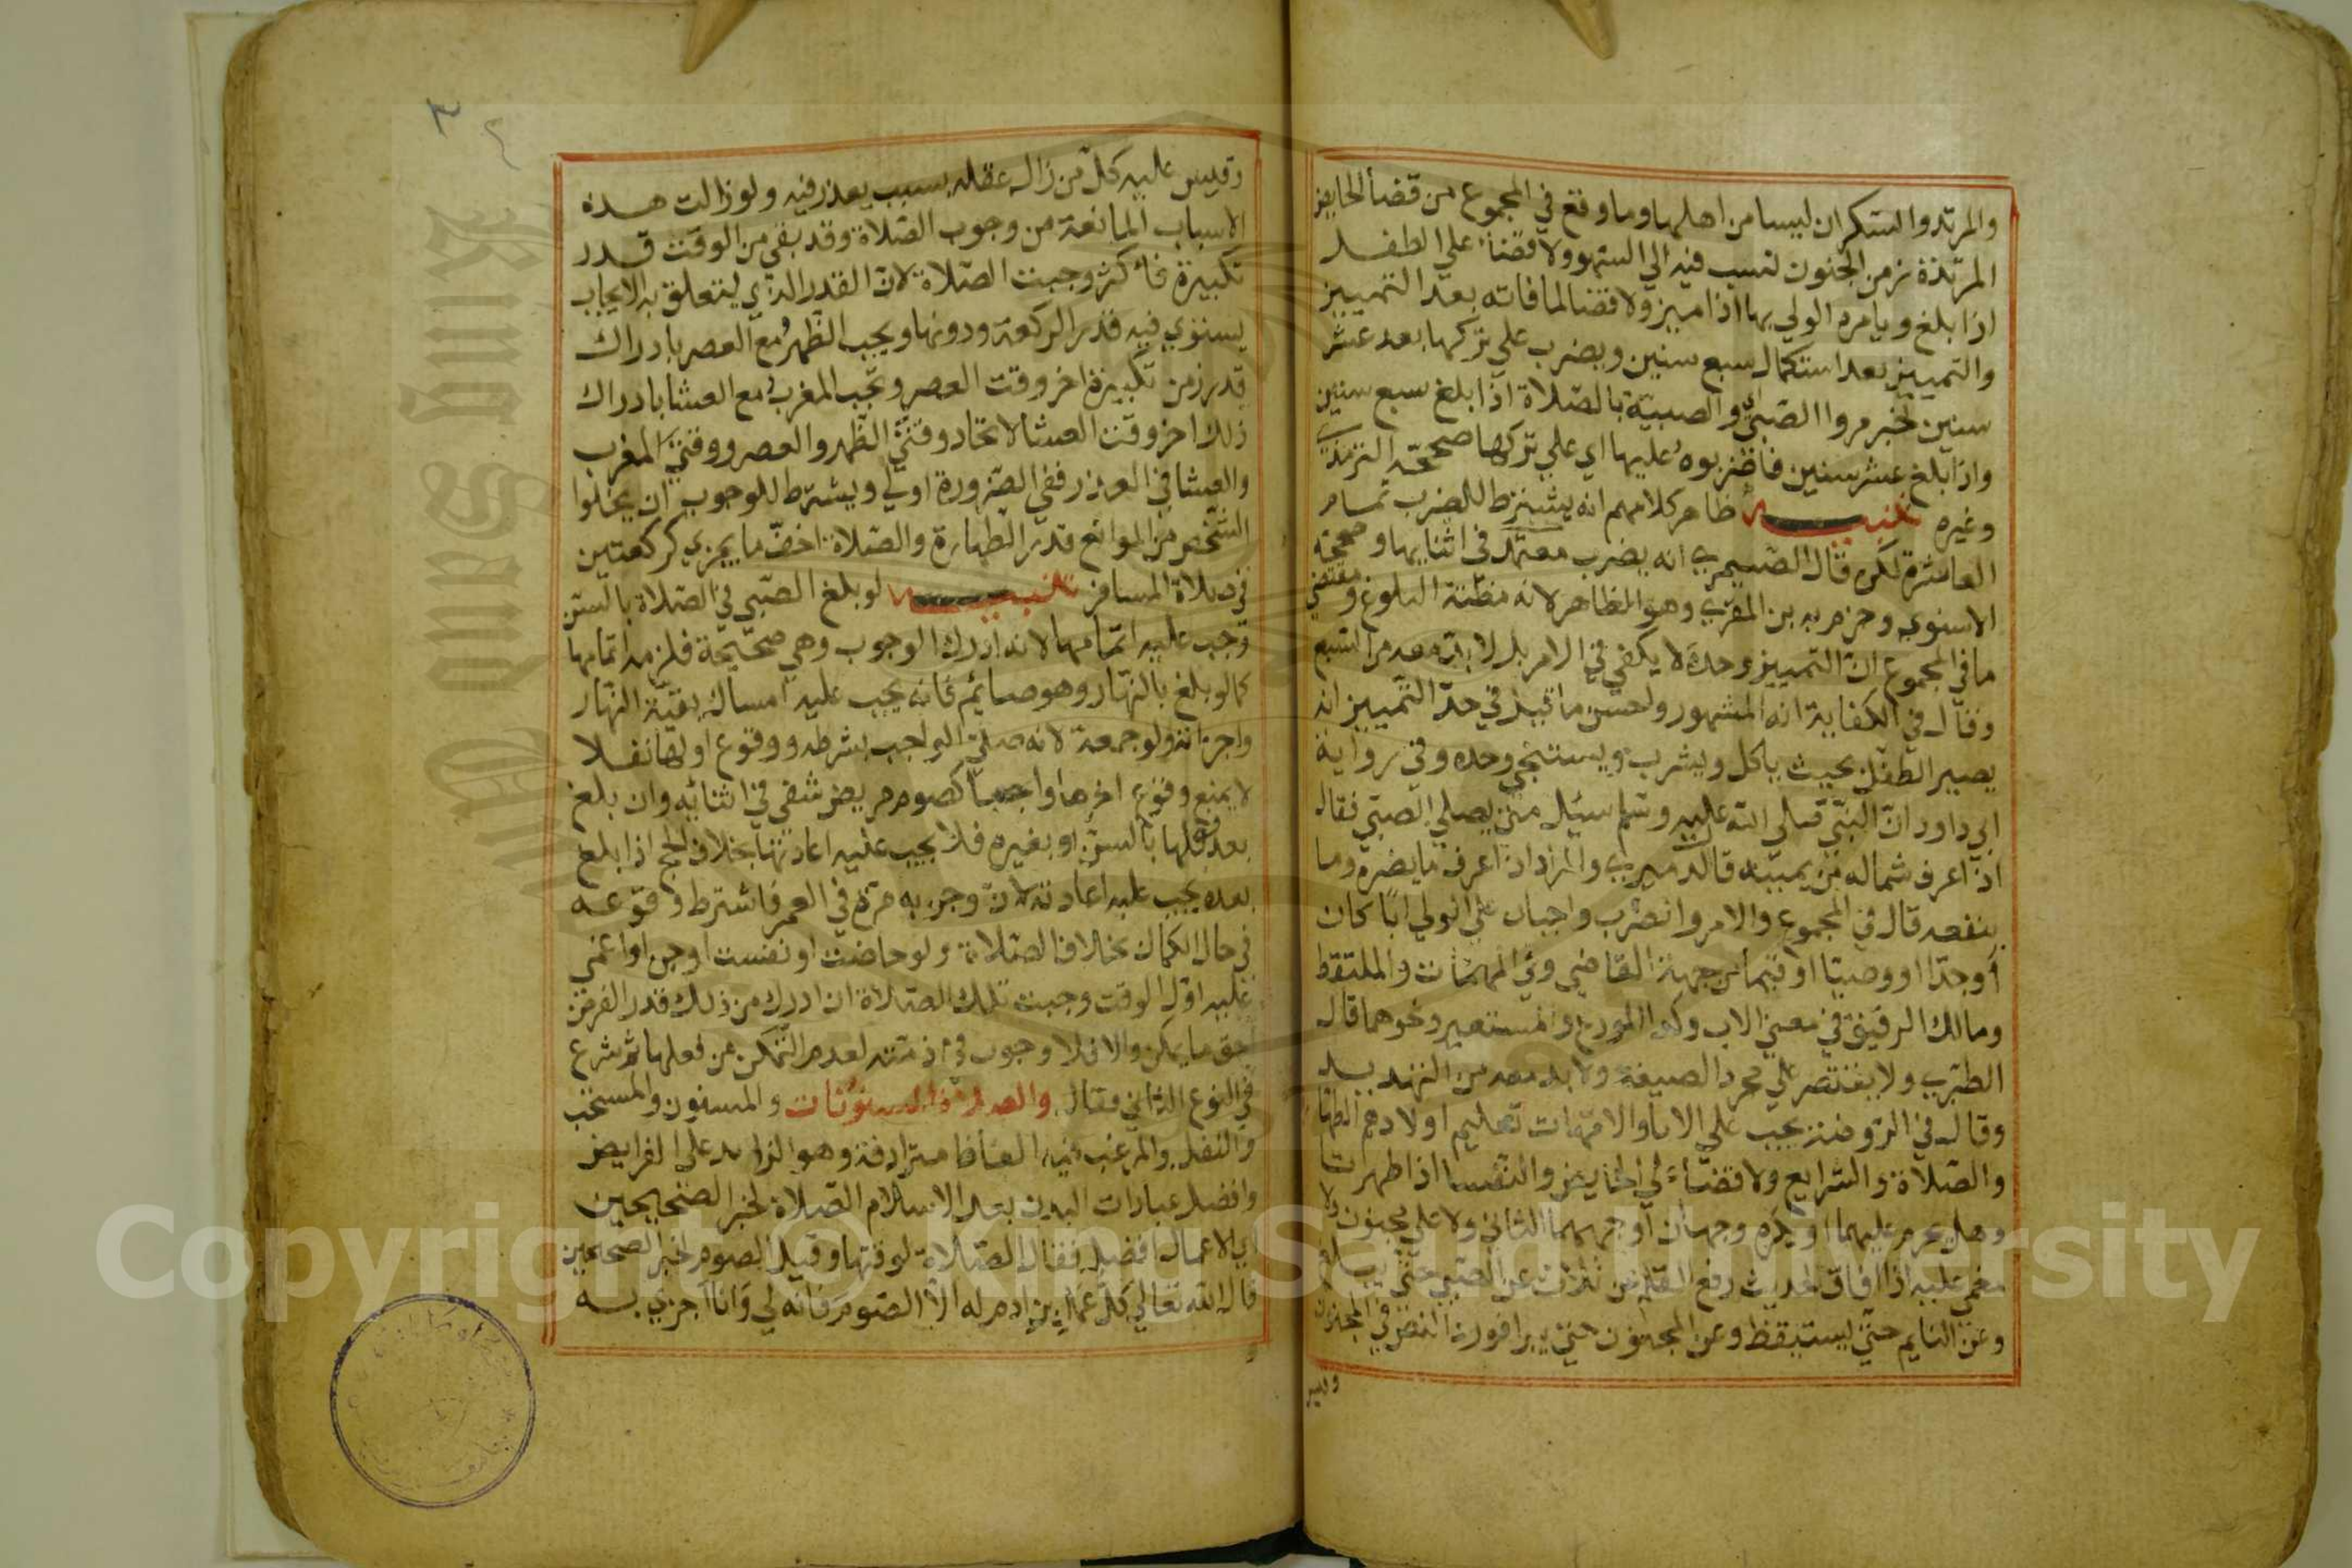 والمرتد والسكران ليسا من اهلها وما وقع في المجموع من قضأ الحايض
المرتدة زمن الجنون نسب فيه الي السهو ولا قضاء علي الطفل
اذا بلغ ويامره الولي بها اذا ميز ولا قضا لما فاته بعد التمييز
والتمييز بعد استكمال سبع سنين ويضرب علي تركها بعد عشر
سنين لخبر مروا الصبي والصبية بالصلاة اذا بلغ سبع سنين
واذا بلغ عشر سنين فاضربوه عليها اي علي تركها صححه الترمذي
وغيره تنبيه ظاهر كلامهم انه يشترط للضرب تمام
العاشرة لكن قال الصيمري انه يضرب في اثنايها وصححه
الاسنوي وجزم به بن المقري وهو الظاهر لانه مظنة البلوغ ومقتضي
ما في المجموع ان التمييز وحده لا يكفي في الامر بل لا بد معه من السبع
وقال في الكفاية انه المشهور واحسن ما قيل في حد التمييز انه
يصير الطفل بحيث ياكل ويشرب ويستنجي وحده وفي رواية
ابي داود ان النبي صلي الله عليه وسلم سيل متي يصلي الصبي فقال
اذا عرف شماله من يمينه قال الدميري والمراد اذا عرف ما يضره وما
ينفعه قال في المجموع والامر والضرب واجبان علي الولي ابا كان
أو جدا او وصيا او قيما من جهة القاضي وفي المهمات والملتقط
ومالك الرقيق في معني الاب وكذا المودع والمستعير ونحوهما قال
الطبري ولا يقتصر علي مجرد الصيغة ولا بد معه من التهديد
وقال في الروضة يجب علي الابا والامهات تعليم اولادهم الطهارة
والصلاة والشرايع ولا قضاء علي الحايض والنفسا اذا طهرتا
وهل يحرم عليهما او يكره وجهان أوجههما الثاني ولا علي مجنون ولا
مغمي عليه اذا افاق لحديث رفع القلم عن ثلاث عن الصبي حتي يبلغ
وعن النايم حتي يستيقظ وعن المجنون حتي يبرا فورد النص في المجنون
وقيس
وقيس عليه كل من زال عقله بسبب يعذر فيه ولو زالت هذه
الاسباب المانعة من وجوب الصلاة وقد بقي من الوقت قدر
تكبيرة فأكثر وجبت الصلاة لان القدر الذي يتعلق به الايجاب
يستوي فيه قدر الركعة ودونها ويجب الظهر مع العصر بادراك
قدر زمن تكبيرة اخر وقت العصر وتجب المغرب مع العشا بادراك
ذلك اخر وقت العشا لاتحاد وقتي الظهر والعصر ووقتي المغرب
والعشا في العذر ففي الضرورة اولي ويشترط للوجوب ان يخلوا
الشخص من الموانع قدر الطهارة والصلاة اخف ما يجزي كركعتين
في صلاة المسافر تنبيه لو بلغ الصبي في الصلاة بالسن
وجب عليه اتمامها لانه ادرك الوجوب وهي صحيحة فلزمه اتمامها
كما لو بلغ بالنهار وهو صايم فانه يجب عليه امساك بقية النهار
واجزأته ولو جمعة لانه صلي الواجب بشرطه ووقوع اولها نفلا
لا يمنع وقوع اخرها واجبا كصوم مريض شفي في اثنائه وان بلغ
بعد فعلها بالسن او بغيره فلا يجب عليه اعادتها بخلاف الحج اذا بلغ
بعده يجب عليه اعادته لان وجوبه مرة في العمر فاشترط وقوعه
في حال الكمال بخلاف الصلاة ولو حاضت او نفست او جن او اغمي
عليه اول الوقت وجبت تلك الصلاة ان ادرك من ذلك قدر الفرض
اخف ما يمكن والا فلا وجوب في ذمته لعدم التمكن من فعلها ثم شرع
في النوع الثاني فقال والصلوات المسنونات والمسنون والمستحب
والنفل والمرغب فيه الفاظ مترادفة وهو الزايد علي الفرايض
وافضل عبادات البدن بعد الاسلام الصلاة لخبر الصحيحين
اي الاعمال افضل فقال الصلاة لوقتها وقيل الصوم لخبر الصحيحين
قال الله تعالي كل عمل بن ادم له الا الصوم فانه لي وانا اجزي به
٣
Copyright © King Saud University
King Saud University